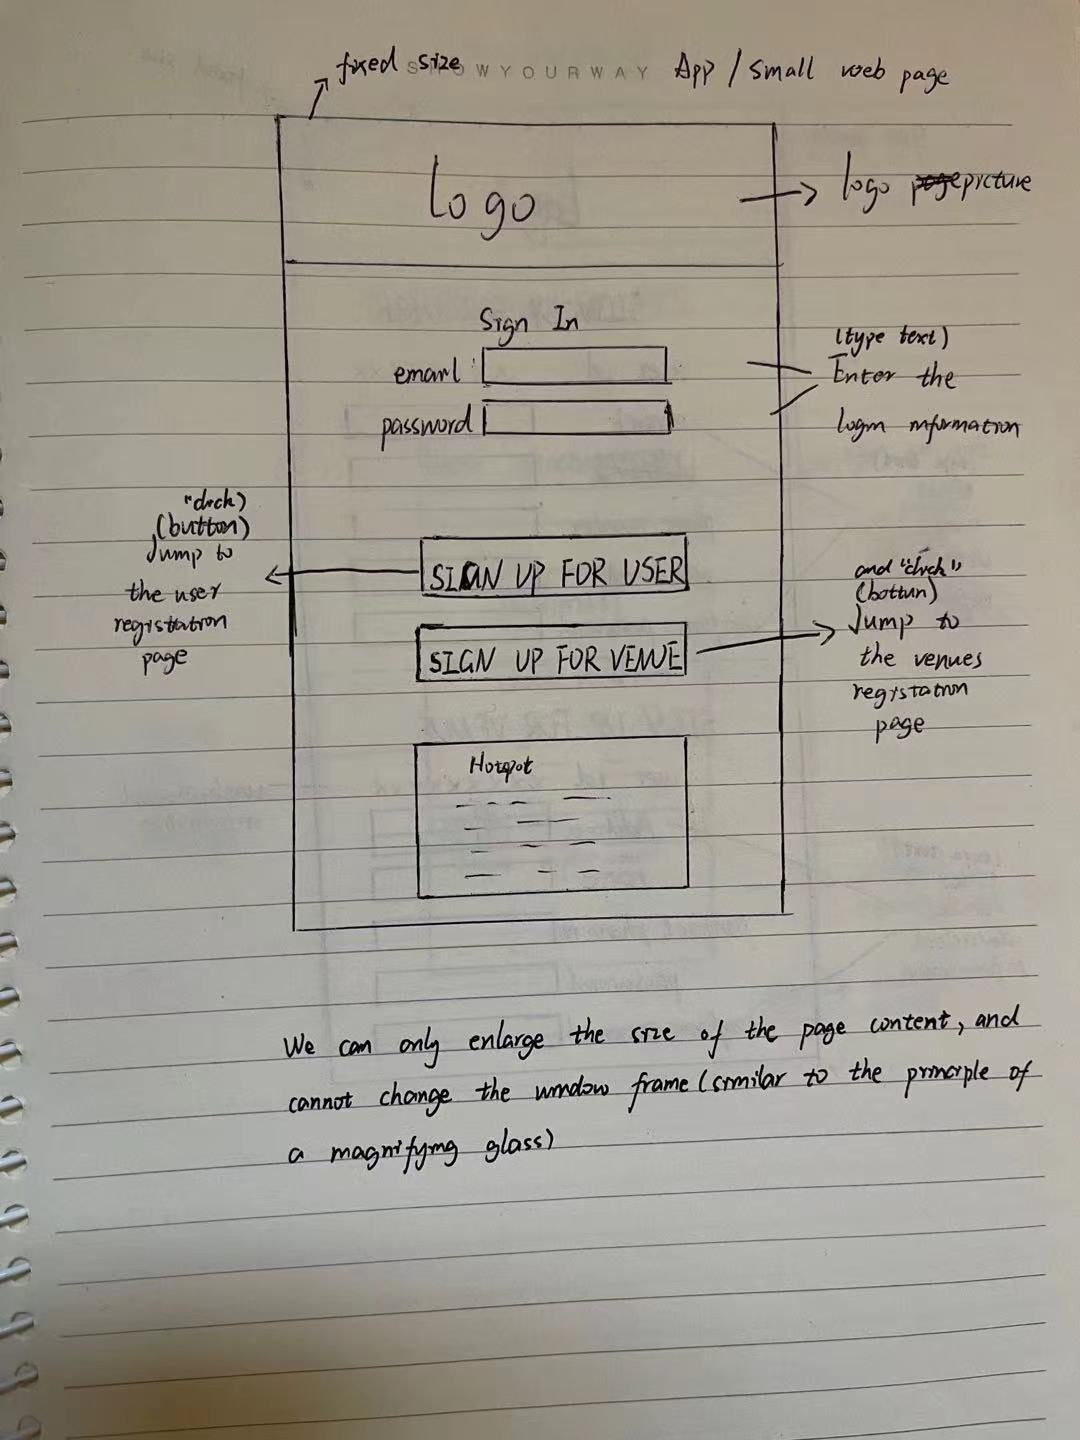 fixed size
SHOWYOURWAY App / small web page
Logo
logo picture
Sign In
email :
password
(type text)
Enter the
login information
"click)
(button)
Jump to
the user
registation
page
SIGN UP FOR USER
SIGN UP FOR VENUE
and "click"
(bottun)
Jump to
the venues
registation
page
Hotspot
We can only enlarge the size of the page content, and
cannot change the window frame (similar to the principle of
a magnifying glass)